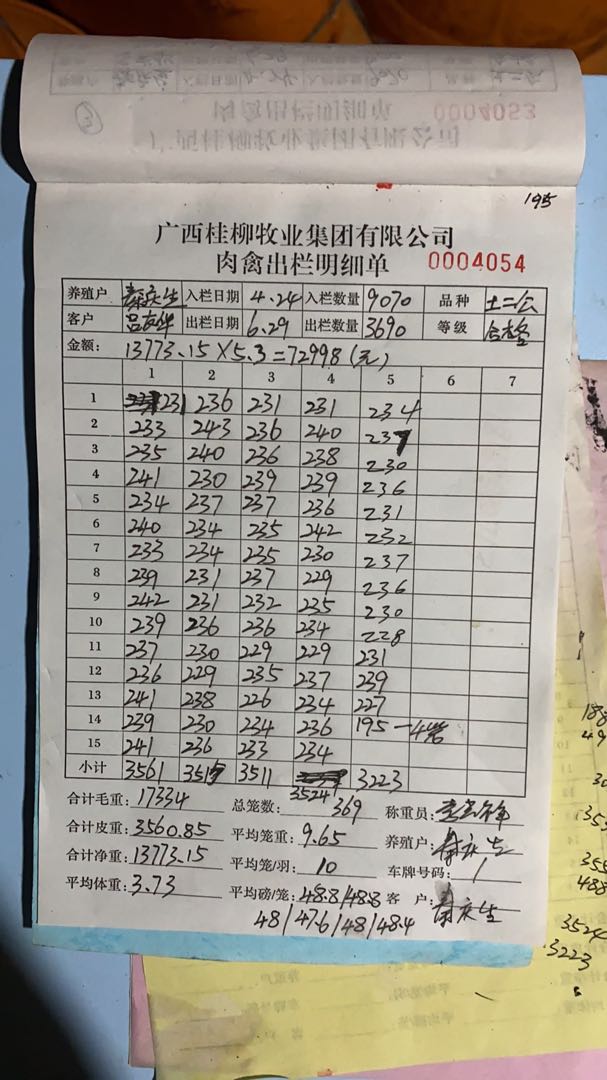 195
广西桂柳牧业集团有限公司
肉禽出栏明细单 0004054
养殖户 秦庆生 入栏日期 4.24 入栏数量 9070 品种 土二公
客户 吕友华 出栏日期 6.29 出栏数量 3690 等级 合格
金额: 13773.15×5.3=72998(元)
1 2 3 4 5 6 7
1 231 236 231 231 234
2 233 243 236 240 237
3 235 240 236 238 230
4 241 230 239 239 236
5 234 237 237 236 231
6 240 234 235 242 232
7 233 234 235 230 237
8 239 231 237 229 236
9 242 231 232 235 230
10 239 236 236 234 228
11 237 230 229 229 231
12 236 229 235 237 239
13 241 238 226 234 227
14 239 230 234 236 195-4笼
15 241 236 233 234
小计 3561 3515 3511 3524 3223
合计毛重: 17334 总笼数: 369 称重员:
合计皮重: 3560.85 平均笼重: 9.65 养殖户: 秦庆生
合计净重: 13773.15 平均笼/羽: 10 车牌号码: 1
平均体重: 3.73 平均磅/笼: 48.8/48.8 客户: 秦庆生
48/47.6/48/48.4
3524
3223